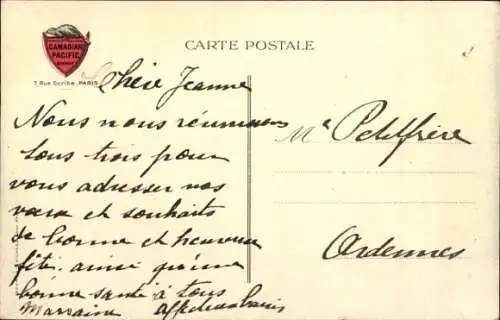 CANADIAN
PACIFIC
7 Rue Scribe, PARIS
CARTE POSTALE
Chère Jeanne
Nous nous réunissons
tous trois pour
vous adresser nos
vœux et souhaits
de bonne et heureuse
fête. ainsi qu'une
bonne santé à tous
Marraine
Petitfrère
Ardennes